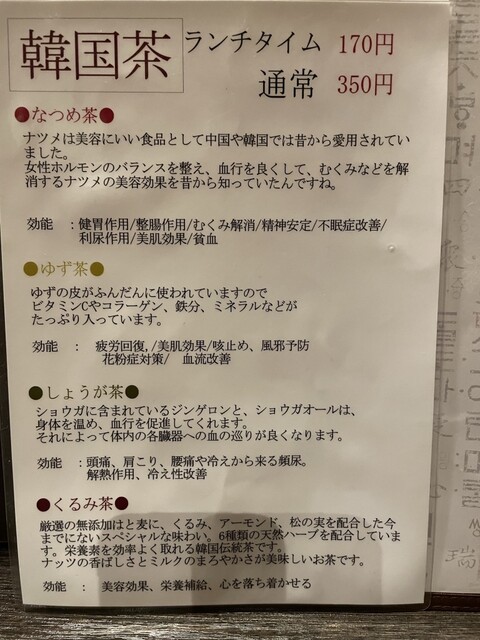 韓国茶 ランチタイム 170円
通常 350円
●なつめ茶●
ナツメは美容にいい食品として中国や韓国では昔から愛用されてい
ました。
女性ホルモンのバランスを整え、血行を良くして、むくみなどを解
消するナツメの美容効果を昔から知っていたんですね。
効能 ：健胃作用/整腸作用/むくみ解消/精神安定/不眠症改善/
利尿作用/美肌効果/貧血
●ゆず茶●
ゆずの皮がふんだんに使われていますので
ビタミンCやコラーゲン、鉄分、ミネラルなどが
たっぷり入っています。
効能 ： 疲労回復,/美肌効果/咳止め、風邪予防
花粉症対策/ 血流改善
●しょうが茶●
ショウガに含まれているジンゲロンと、ショウガオールは、
身体を温め、血行を促進してくれます。
それによって体内の各臓器への血の巡りが良くなります。
効能 ：頭痛、肩こり、腰痛や冷えから来る頻尿。
解熱作用、冷え性改善
●くるみ茶●
厳選の無添加はと麦に、くるみ、アーモンド、松の実を配合した今
までにないスペシャルな味わい。6種類の天然ハーブを配合していま
す。栄養素を効率よく取れる韓国伝統茶です。
ナッツの香ばしさとミルクのまろやかさが美味しいお茶です。
効能 ： 美容効果、栄養補給、心を落ち着かせる
瑞